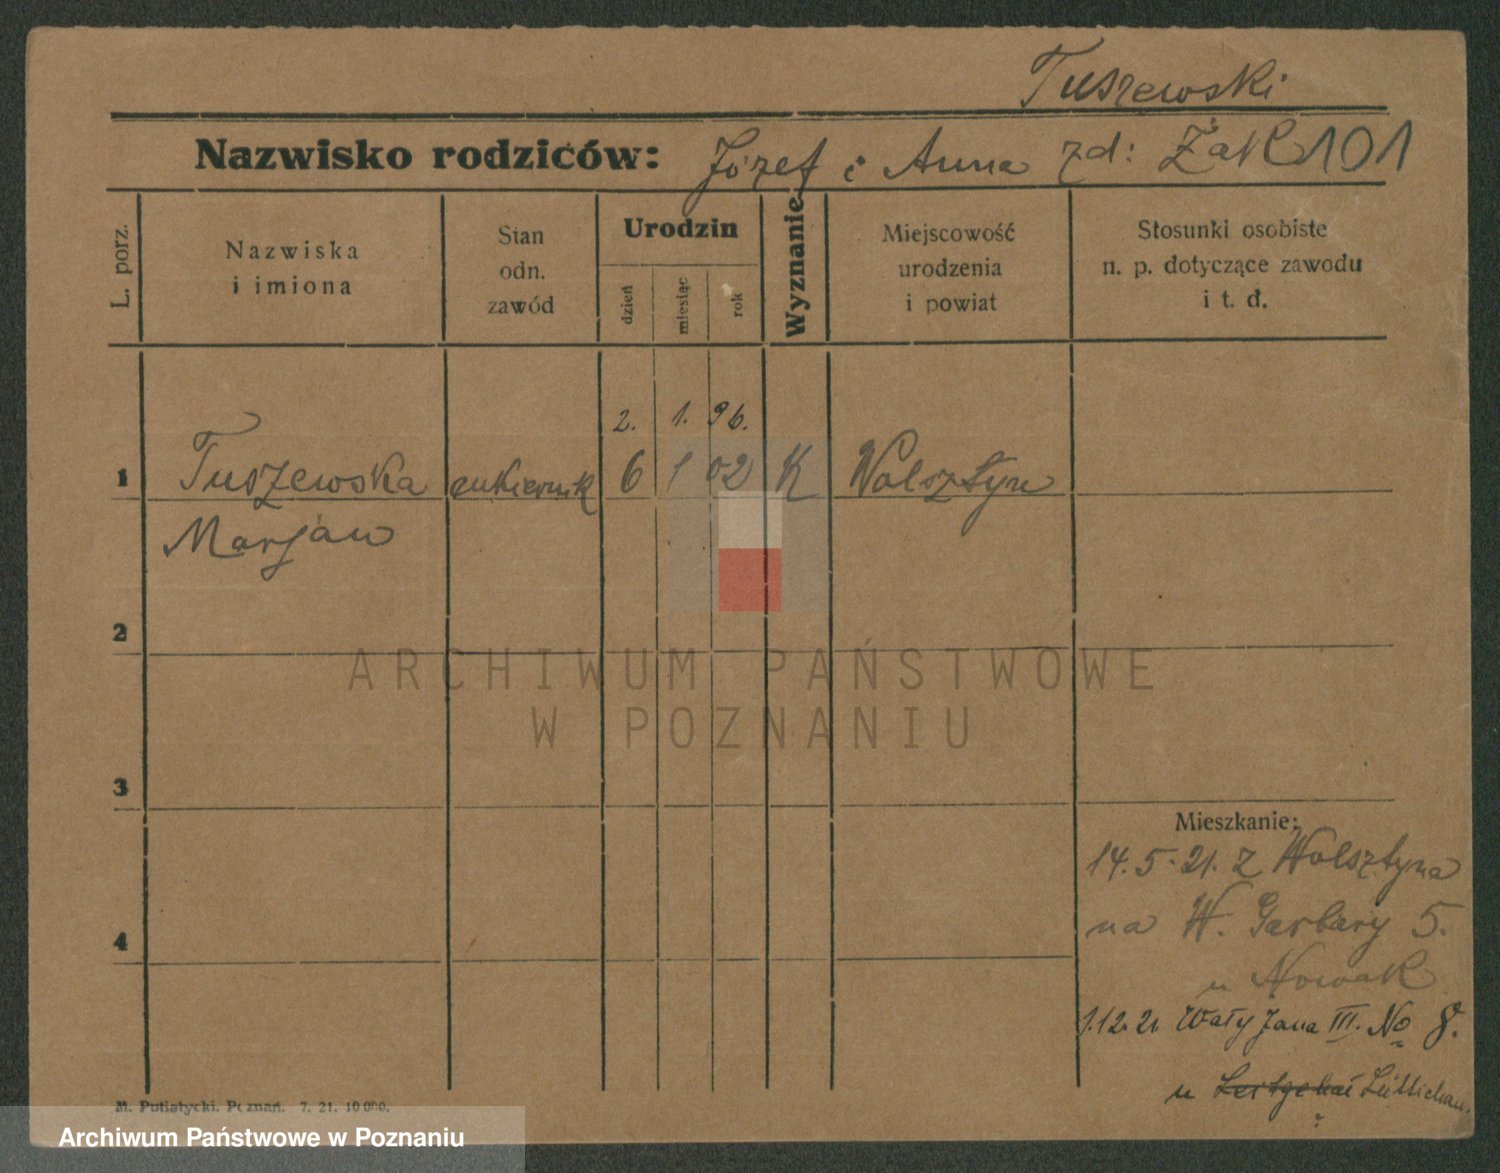 Tuszewski
Nazwisko rodziców: Józef i Anna zd: Żak 101
L. porz.
Nazwiska
i imiona
Stan
odn.
zawód
Urodzin
dzień
miesiąc
rok
Wyznanie
Miejscowość
urodzenia
i powiat
Stosunki osobiste
n. p. dotyczące zawodu
i t. d.
2. 1. 96.
1 Tuszewska cukiernik 6 1 02 K Wolsztyn
Marjan
2
ARCHIWUM PAŃSTWOWE
W POZNANIU
3
Mieszkanie:
14.5.21. z Wolsztyna
na W. Garbary 5.
u Nowak
4
1.12.21 Wały Jana III. No 8.
u
M. Putiatycki. Poznań. 7. 21. 10 000.
Archiwum Państwowe w Poznaniu